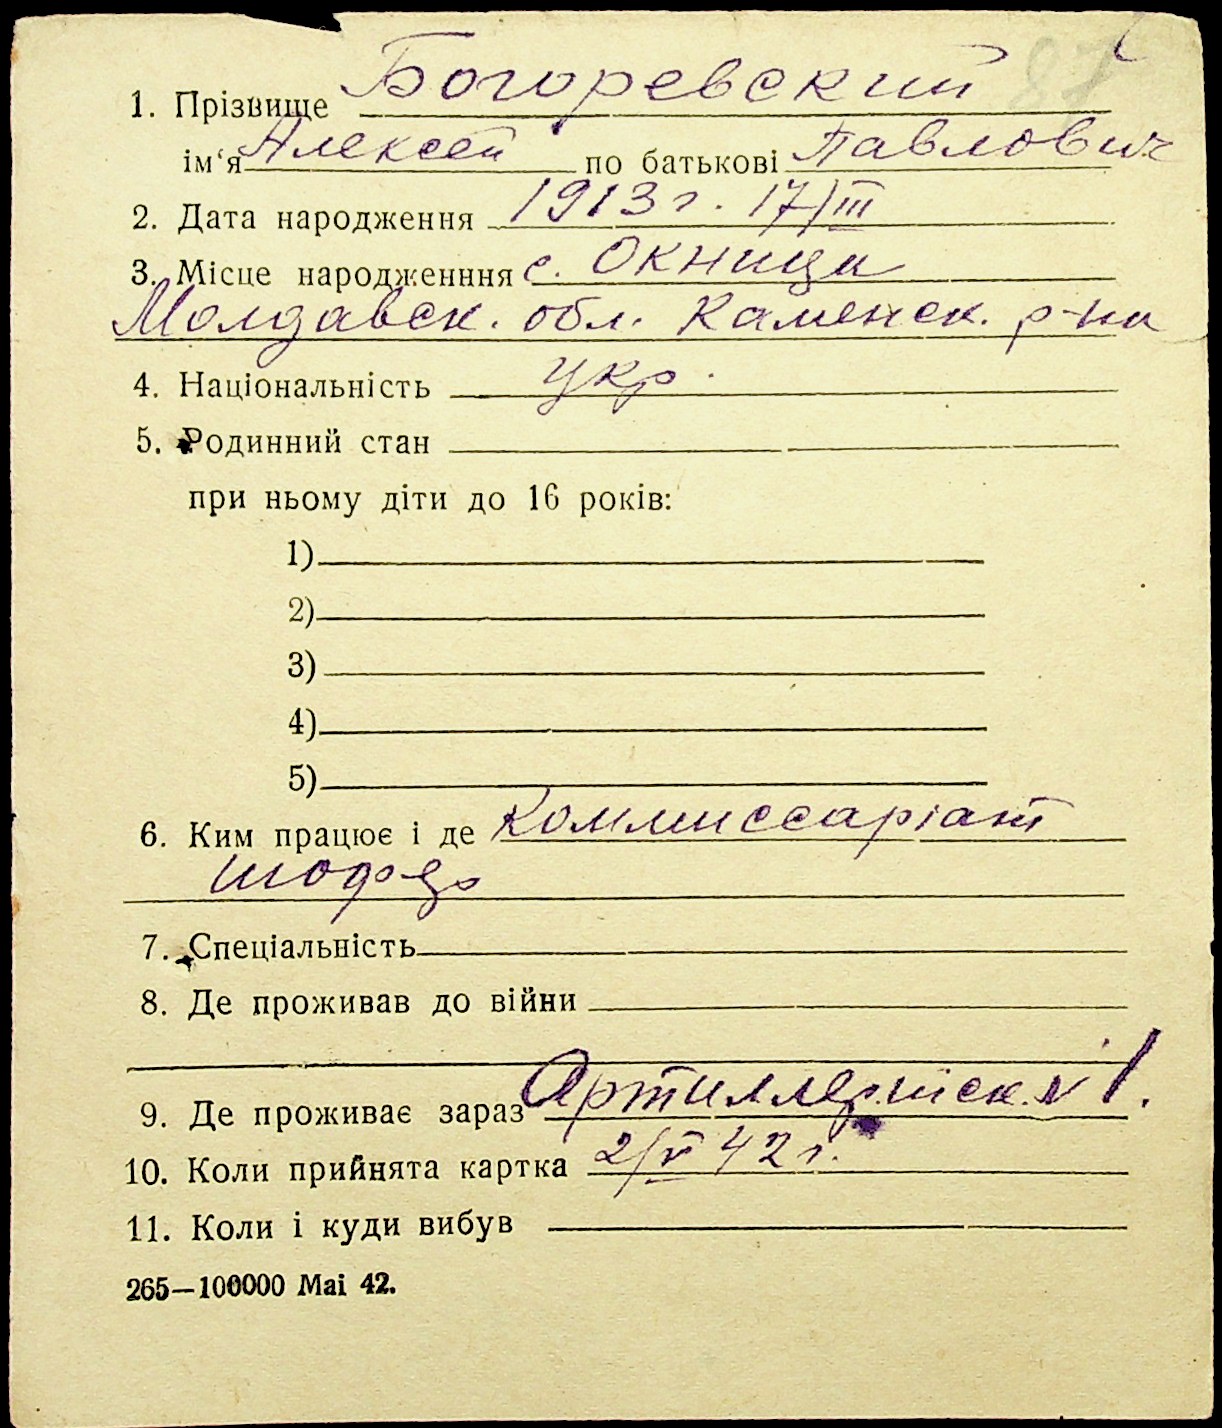 87
1. Прізвище Богоревский
ім‘я Алексей по батькові Павлович
2. Дата народження 1913 г. 17/III
3. Місце народженння с. Окница
Молдавск. обл. Каменск. р-на
4. Національність укр.
5. Родинний стан
при ньому діти до 16 років:
1)
2)
3)
4)
5)
6. Ким працює і де Коммиссаріат
шофер
7. Спеціальність
8. Де проживав до війни
9. Де проживає зараз Артиллерийск. № 1.
10. Коли прийнята картка 2/V 42 г.
11. Коли і куди вибув
265—100000 Mai 42.